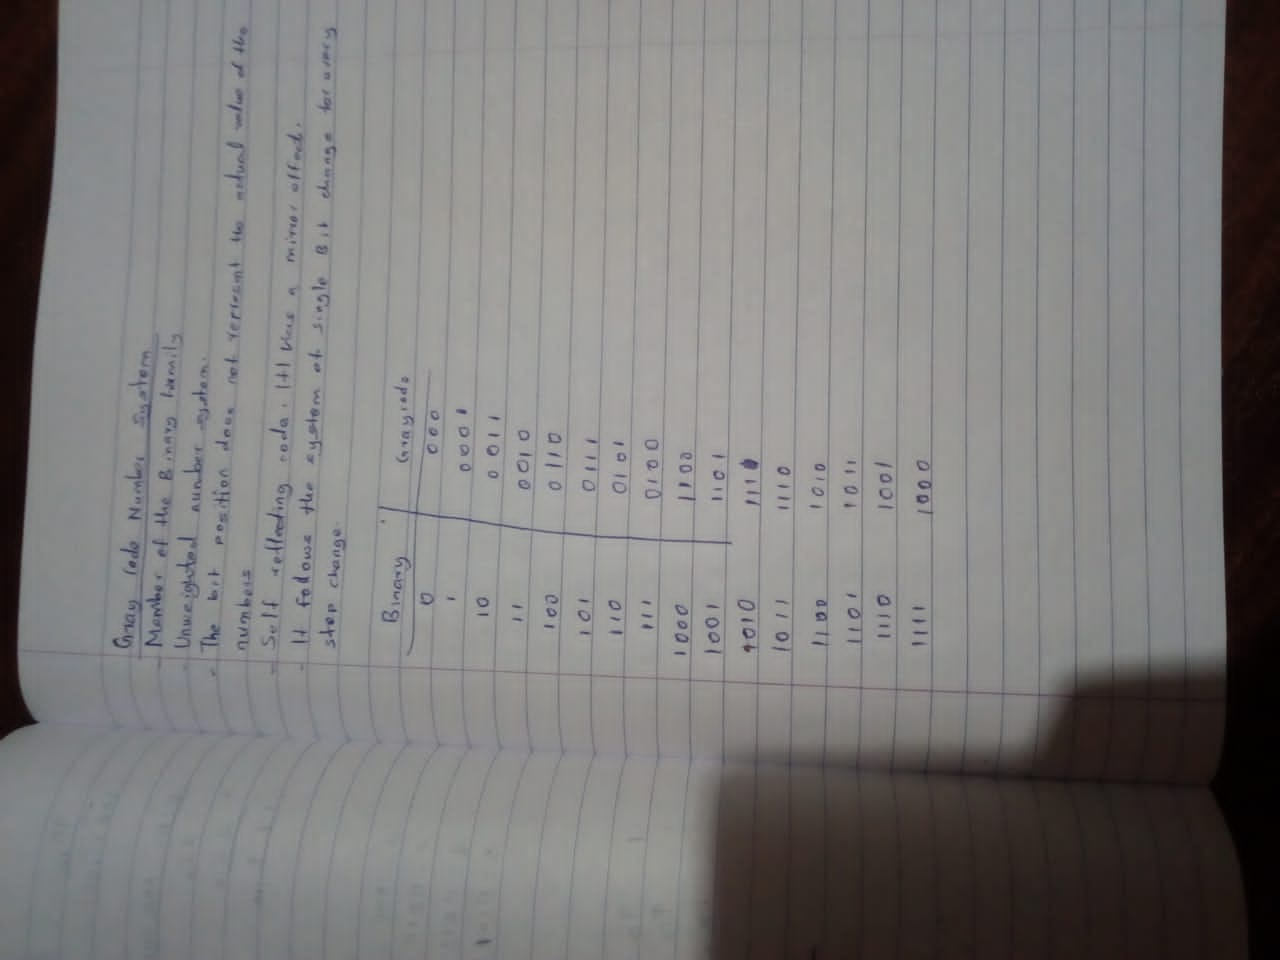 Gray Code Number System
- Member of the Binary family
- Unweighted number system.
- The bit position does not represent the actual value of the
numbers
- Self reflecting code. It has a mirror effect.
- It follows the system of single Bit change for every
step change.
Binary Graycode
0 000
1 0001
10 0011
11 0010
100 0110
101 0111
110 0101
111 0100
1000 1100
1001 1101
1010 1111
1011 1110
1100 1010
1101 1011
1110 1001
1111 1000